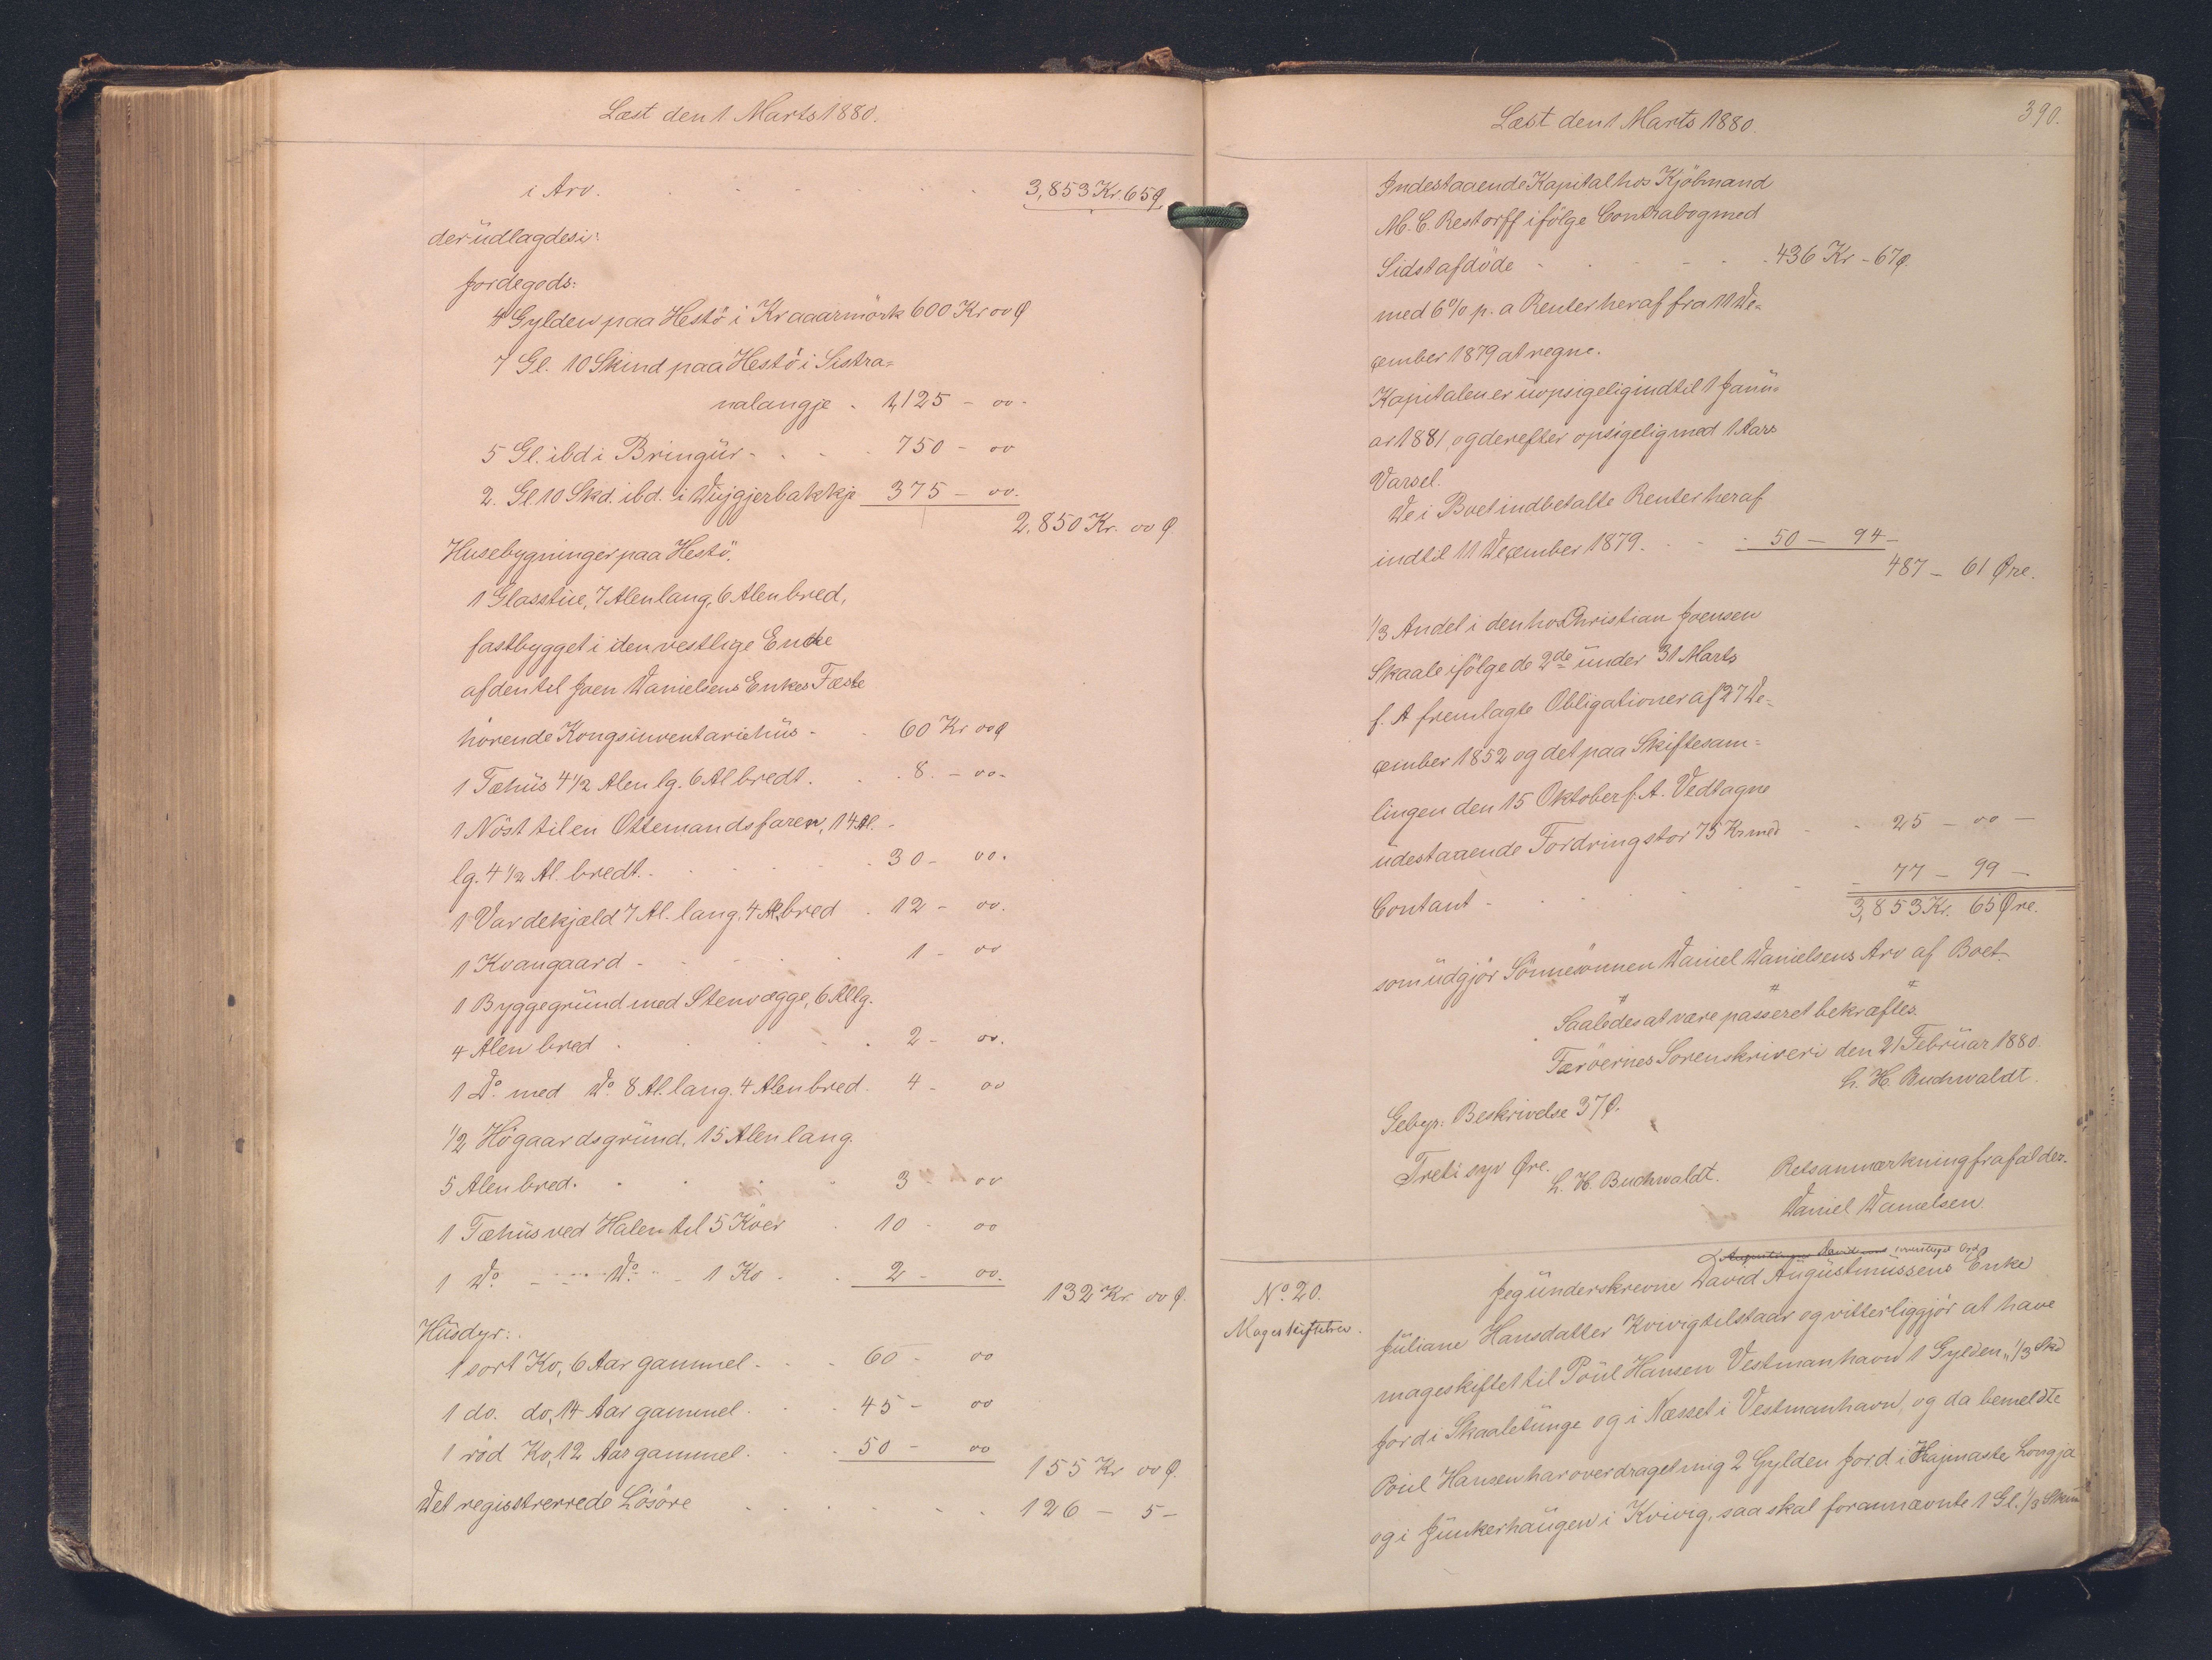 Læst den 1 Marts 1880.
i Arv. 3,853 Kr. 65 Ø.
der udlagdes i:
Jordegods:
4 Gylden paa Hestö i Kraaarmörk 600 Kr 00 Ø
7 Gl. 10 Skind paa Hestö i Sistra=
nalangje . 1,125 - 00 -
5 Gl. ibd i Bringür - . . . 750 - 00
2. Gl 10 Skd. ibd. i Wijgjerbakkje 375 - 00.
2,850 Kr. 00 Ø
Husebygninger paa Hestö.
1 Glasstue, 7 Alen lang, 6 Alen bred,
fastbygget i den vestlige Ende
af den til Joen Danielsens Enkes Fæste
hörende Kongsinventariehüs - . 60 Kr 00 Ø
1 Fæhüs 4 1/2 Alen lg. 6 Al bredt. . . 8. - 00 -
1 Nöst til en Ottemandsfarer, 14 Al. -
lg. 4 1/2 Al. bredt. - . . . . 30 - 00.
1 Vardekjæld 7 Al. lang. 4 Al. bred . 12 - 00.
1 Kvangaard - . . . . 1 - 00
1 Byggegründ med Stenvægge, 6 Al lg.
4 Alen bred . . . . . 2 - 00.
1 Do. med Do. 8 Al. lang. 4 Alen bred. 4 - 00
1/2 Högaardsgründ, 15 Alen lang.
5 Alen bred. . . . 3 00
1 Fæhüs ved Halen til 5 Köer . 10 - 00
1 Do. - - - Do. - - 1 Ko - . 2 - 00.
132 Kr. 00 Ø.
Hüsdyr:
1 sort Ko, 6 Aar gammel - . . . 60 - 00
1 do. do, 14 Aar gammel . . . 45 - 00
1 röd Ko, 12 Aar gammel . . . 50 - 00
155 Kr 00 Ø.
Det registrerrede Lösöre . . . . . . 126 - 5 -
Læst den 1 Marts 1880.
390.
Indestaaende Kapital hos Kjöbmand
M. C. Restorff ifölge Contrabog med
Sidstafdöde - . . - - . 436 Kr - 67 Ø.
med 6 % p. a Renter heraf fra 11 De=
cember 1879 at regne.
Kapitalen er üopsigelig indtil 1 Janü=
ar 1881, og derefter opsigelig med 1 Aars
Varsel.
De i Boet indbetalte Renter heraf
indtil 11 December 1879. . - - . 50 - 94 -
487 - 61 Øre.
1/3 Andel i den hos Christian Joensen
Skaale ifölge de 2de ünder 31 Marts
f. A fremlagte Obligationer af 27 De=
cember 1852 og det paa Skiftesam=
lingen den 15 Oktober f. A. Vedtagne
üdestaaende Fordring stor 75 Kr med - . 25 - 00 -
Contant - . . . - - 77 - 99 -
3,853 Kr. 65 Øre.
som üdgjör Sönnesönnen Daniel Danielsens Arv af Boet.
Saaledes at være passeret bekræftes.
Færöernes Sorenskriveri den 21 Februar 1880.
L. H. Buchwaldt.
Gebyr: Beskrivelse 37 Ø.
Treti syv Øre.
L. H. Buchwaldt. Retsanmærkning frafalder.
Daniel Danielsen
No. 20.
Mageskiftebrev.
Jeg ünderskrevne David Augustinüssens Enke
Jüliane Hansdatter Kvivig tilstaar og vitterliggjör at have
mageskiftet til Poül Hansen Vestmanhavn 1 Gylden „ 1/3 Skd
Jord i Skaaletünge og i Næsset i Vestmanhavn, og da bemeldte
Poül Hansen har overdraget mig 2 Gylden Jord i Hajmaste Longja
og i Jünkerhaügen i Kvivig, saa skal forannævnte 1 Gl. 1/3 Skin